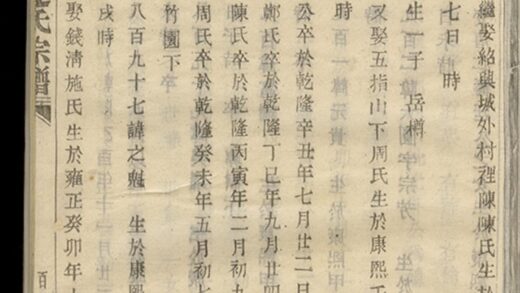 繼娶紹興城外村裡陳陳氏生於
七日時
生一子 岳樽
又娶五指山下周氏生於康熙
時
公卒於乾隆辛丑年七月廿二日
鄭氏卒於乾隆丁巳年九月廿四
陳氏卒於乾隆丙寅年二月初九
周氏卒於乾隆癸未年五月初七
竹園下
八百九十七諱之魁 生於康熙
戌時
娶錢清施氏生於雍正癸卯年十
氏宗譜
百